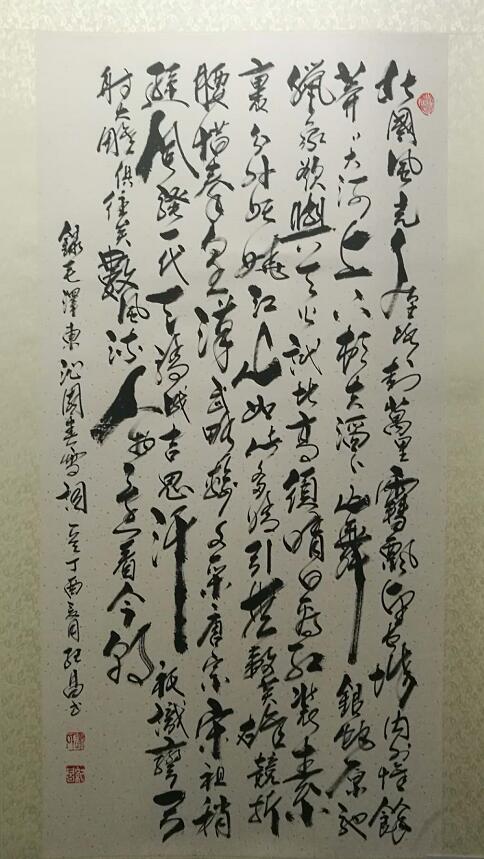 北國風光千里冰封萬里雪飄望長城內外惟餘
莽々大河上下頓失滔々山舞銀蛇原馳
蠟象欲與天公試比高須晴日看紅裝素
裹分外妖嬈江山如此多嬌引無數英雄競折
腰惜秦皇漢武略輸文采唐宗宋祖稍
遜風騷一代天驕成吉思汗祇識彎弓
射大雕俱往矣數風流人物還看今朝
錄毛澤東沁園春雪詞一首丁酉月昌書